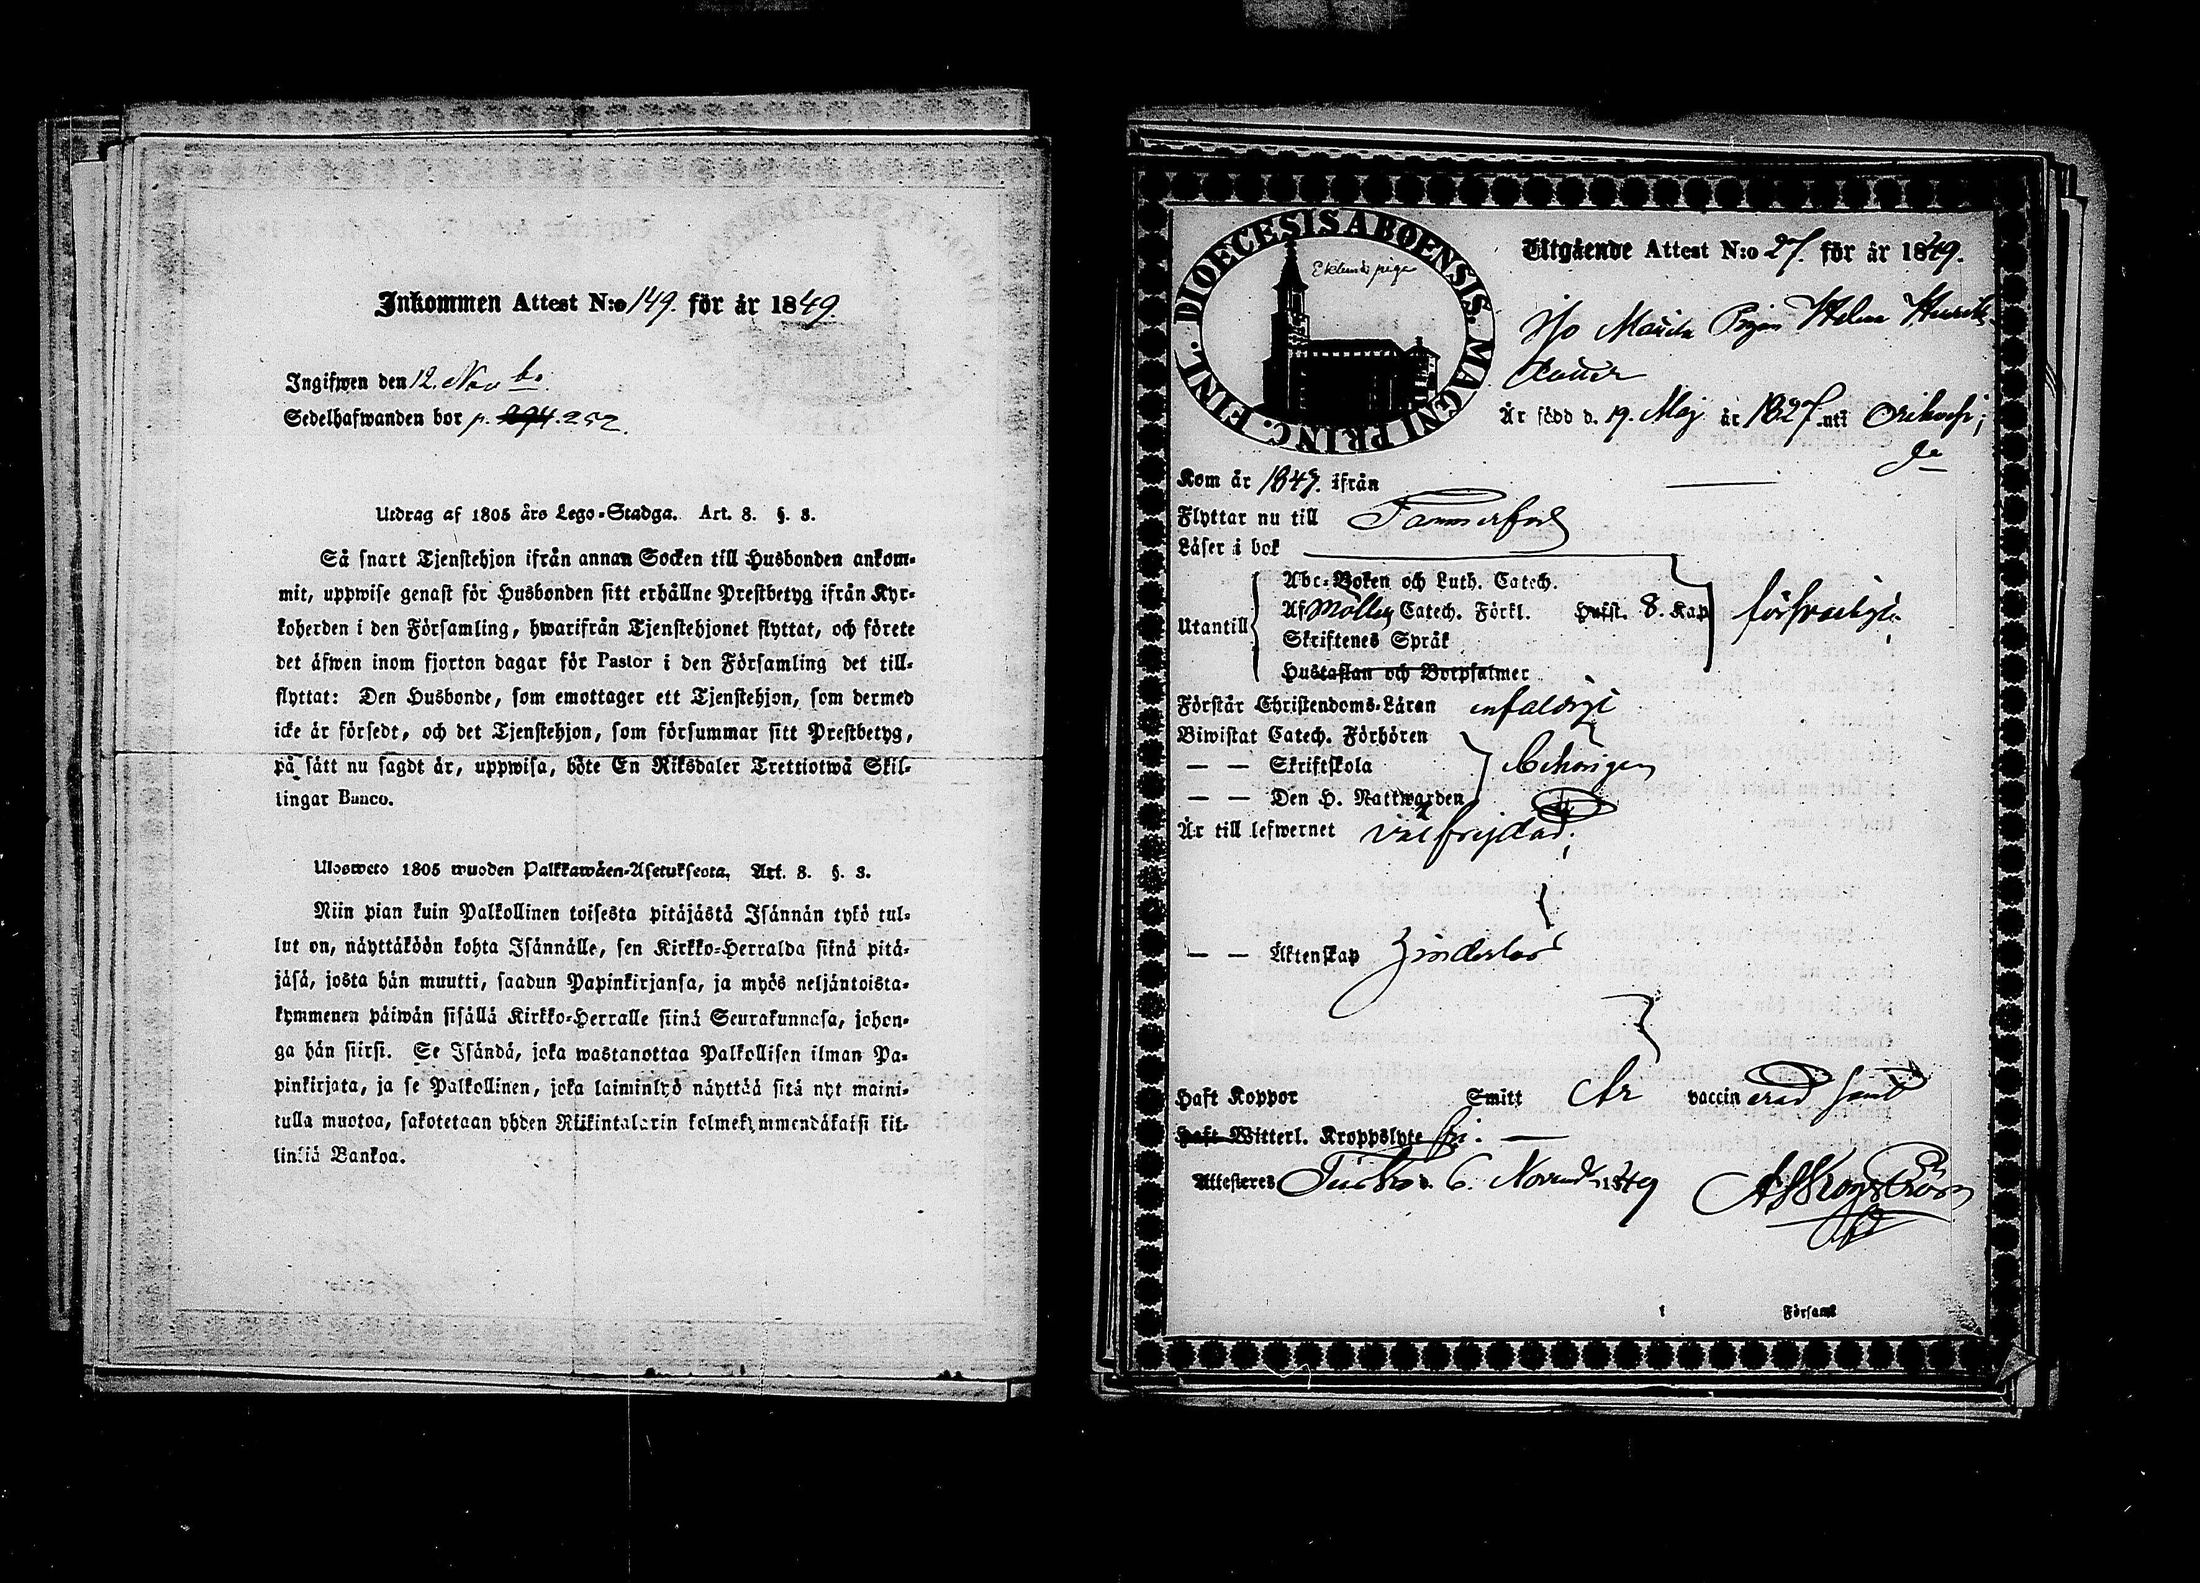 Inkommen Attest N:o 149. för år 1849.
Ingifwen den 12. Novbr.
Sedelhafwanden bor p. 294. 252.
Utdrag af 1805 års Lego-Stadga. Art. 8. §. 3.
Så snart Tjenstehjon ifrån annan Socken till Husbonden ankom-
mit, uppwise genast för Husbonden sitt erhållne Prestbetyg ifrån Kyr-
koherden i den Församling, hwarifrån Tjenstehjonet flyttat, och förete
det äfwen inom fjorton dagar för Pastor i den Församling det till-
flyttat: Den Husbonde, som emottager ett Tjenstehjon, som dermed
icke är försedt, och det Tjenstehjon, som försummar sitt Prestbetyg,
på sätt nu sagdt är, uppwisa, böte En Riksdaler Trettiotwå Skil-
lingar Banco.
Ulosweto 1805 wuoden Palkkawäen-Asetuksesta. Art. 8. §. 3.
Niin pian kuin Palkollinen toisesta pitäjästä Isännän tykö tul-
lut on, näyttäköön kohta Isännälle, sen Kirkko-Herralda siinä pitä-
jäsä, josta hän muutti, saadun Papinkirjansa, ja myös neljäntoista-
kymmenen päiwän sisällä Kirkko-Herralle siinä Seurakunnasa, johon-
ga hän siirsi. Se Isändä, joka wastanottaa Palkollisen ilman Pa-
pinkirjata, ja se Palkollinen, joka laiminlyö näyttää sitä nyt maini-
tulla muotoa, sakotetaan yhden Riikintalarin kolmekymmendäkaksi kil-
lingiä Bankoa.
DIOECESIS ABOENSIS. MAGNI PRINC. FINL.
Eklunds piga
Utgående Attest N:o 27. för år 1849.
Pigan Helena Henriks-
dotter
Är född d. 19. Maj år 1827. uti Orihvesi;
Kom år 1847. ifrån
Flyttar nu till Tammerfors
Läser i bok
Utantill
Abc-Boken och Luth. Catech.
Af Möllers Catech. Förkl. Husst. 8. Kap
Skriftenes Språk
Hustaflan och Botpsalmer
försvarligt.
Förstår Christendoms-Läran enfaldigt
Biwistat Catech. Förhören
— — Skriftskola
— — Den H. Nattwarden
behörigen
Är till lefwernet välfrejdad;
— — Äktenskap hinderlös
Haft Koppor Smitt Är vaccinerad samt
Haft Witterl. Kroppslyte fri. —
Attesteras d. 6. Novemb. 1849
1 Församl